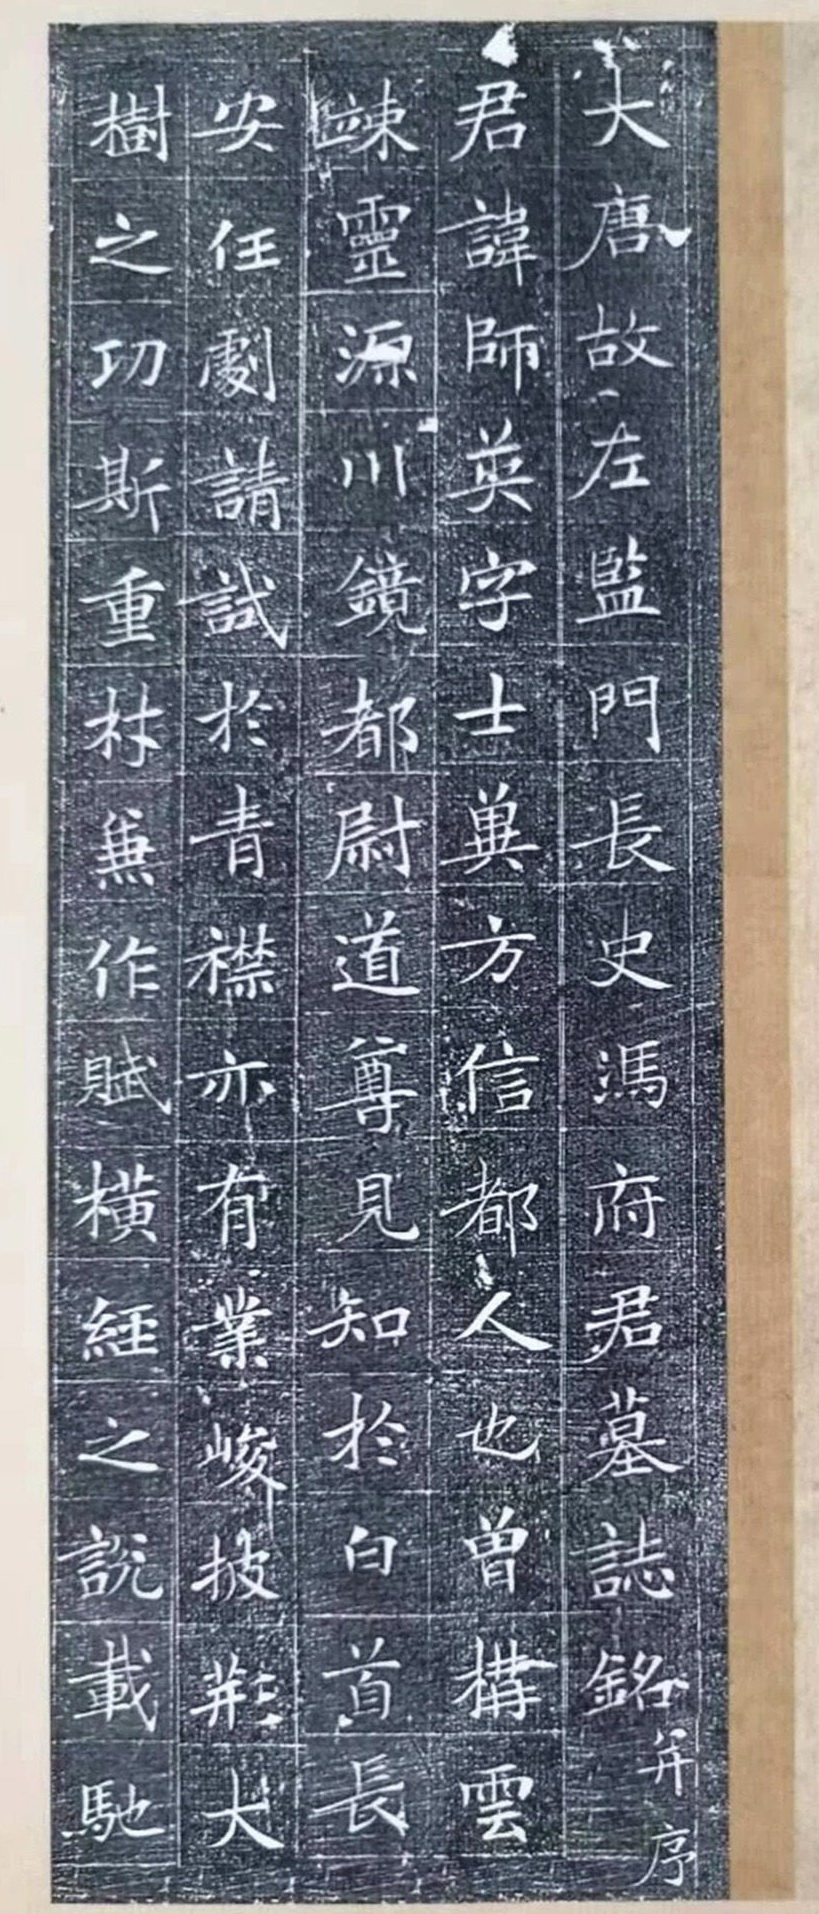 大唐故左監門長史馮府君墓誌銘并序
君諱師英字士兾方信都人也曾構雲
竦靈源川鏡都尉道尊見知於白首長
安任劇請試於青襟亦有業峻披荊大
樹之功斯重材兼作賦橫經之説載馳